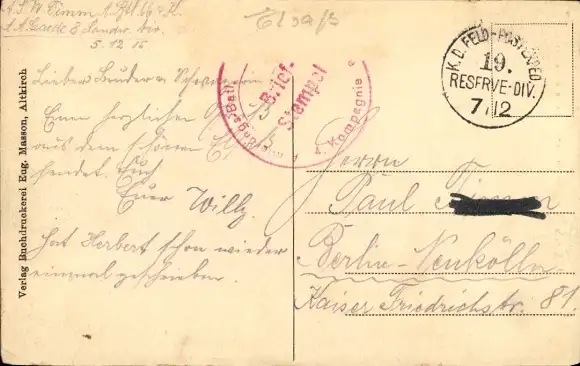 Elsaß
5.12.15
Lieber Bruder u. Schwägerin
Einen herzlichen Gruß
aus dem schönen Elsaß
sendet Euch
Euer Willy.
Hat Herbert schon wieder
einmal geschrieben.
Verlag Buchdruckerei Eug. Masson, Altkirch
Brief-
Stempel
4. Kompagnie
K.D. FELD-POSTEXPED.
19.
RESERVE-DIV.
7/12
Herrn
Paul
Berlin-Neukölln
Kaiser Friedrichstr. 81.